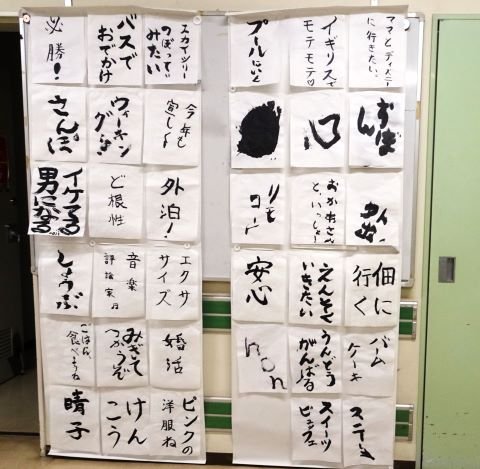 ママとディズニーに行きたい。
イギリスで
モテモテ♡
プールにいく
ずぼん
心
おかあさん
と、いっしょ
リモコン
佃に
行く
えんそく
いきたい
安心
バーム
ケーキ
うんどう
がんばる
non
スイーツ
ビュッフェ
スカイツリー
のぼって
みたい
バスで
おでかけ
必勝！
今年も
宜しく
ウォーキン
グ
さんぽ
外泊！
ど根性
イケてる
男になる
エクサ
サイズ
音楽
評論家
しょうぶ
婚活
みぎて
つかうぞ
ごはん
食べようね
ピンクの
洋服ね
けん
こう
晴子